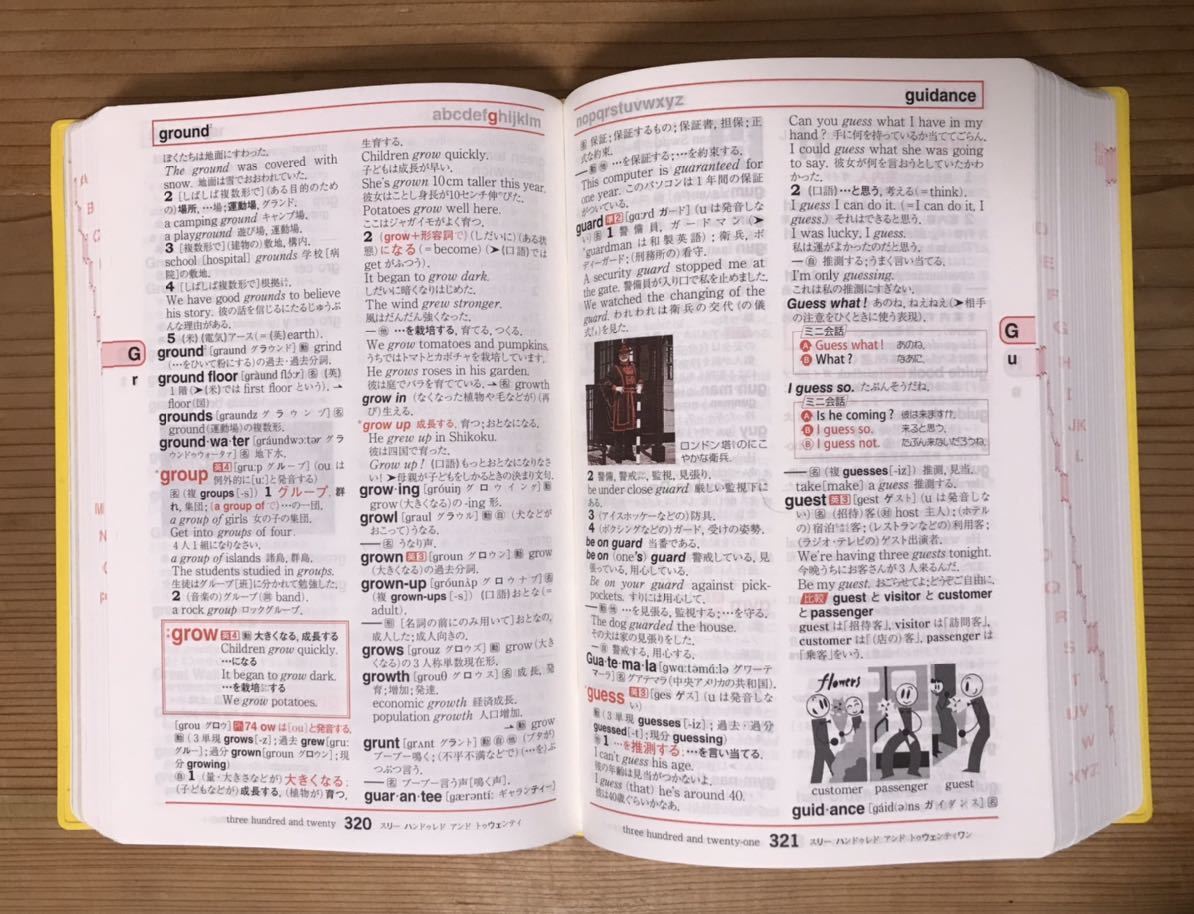 ground²
abcdefghijklm
ぼくたちは地面にすわった。
The ground was covered with
snow. 地面は雪でおおわれていた。
2 [しばしば複数形で] (ある目的のため
の)場所, …場; 運動場, グランド.
a camping ground キャンプ場.
a playground 遊び場, 運動場.
3 [複数形で] (建物の)敷地, 構内.
school [hospital] grounds 学校[病
院]の敷地.
4 [しばしば複数形で] 根拠.
We have good grounds to believe
his story. 彼の話を信じるにたるじゅうぶ
んな理由がある.
5 (米)(電気)アース(=(英)earth).
ground² [graund グラウンド] 動 grind
(…をひいて粉にする)の過去・過去分詞.
ground floor [gràund flɔ́ːr] 名 (英)
1階 (➤(米)では first floor という). →
floor (図)
grounds [graundz グラウンヅ] 名
ground (運動場)の複数形.
ground·wa·ter [gráundwɔːtər グラ
ウンドゥウォータァ] 名 地下水.
*group 英4 [gruːp グループ] (ou は
例外的に[uː]と発音する)
名 (複 groups [-s]) 1 グループ, 群
れ, 集団; (a group of で) …の一団.
a group of girls 女の子の集団.
Get into groups of four.
4人1組になりなさい.
a group of islands 諸島, 群島.
The students studied in groups.
生徒はグループ[班]に分かれて勉強した.
2 (音楽の)グループ(類 band).
a rock group ロックグループ.
grow 英4 動 大きくなる, 成長する
Children grow quickly.
…になる
It began to grow dark.
…を栽培する
We grow potatoes.
[grou グロウ] 74 ow は[ou]と発音する.
動 (3単現 grows [-z]; 過去 grew [gruː
グルー]; 過分 grown [groun グロウン]; 現
分 growing)
自 1 (量・大きさなどが)大きくなる;
(子どもなどが)成長する, (植物が)育つ,
生育する.
Children grow quickly.
子どもは成長が早い.
She's grown 10cm taller this year.
彼女はことし身長が10センチ伸びた.
Potatoes grow well here.
ここはジャガイモがよく育つ.
2 (grow+形容詞で)(しだいに)(ある状
態)になる(=become) (➤(口語)では
get がふつう).
It began to grow dark.
しだいに暗くなりはじめた.
The wind grew stronger.
風はだんだん強くなった.
— 他 …を栽培する, 育てる, つくる.
We grow tomatoes and pumpkins.
うちではトマトとカボチャを栽培しています.
He grows roses in his garden.
彼は庭でバラを育てている. → 名 growth
grow in (なくなった植物や毛などが)(再
び)生える.
*grow up 成長する, 育つ; おとなになる.
He grew up in Shikoku.
彼は四国で育った.
Grow up! (口語)もっとおとなになりなさ
い! ➤母親が子どもをしかるときの決まり文句.
grow·ing [gróuiŋ グロウイング] 動
grow (大きくなる)の -ing 形.
growl [graul グラウル] 動 自 (犬などが
おこって)うなる.
— 名 うなり声.
grown 英3 [groun グロウン] 動 grow
(大きくなる)の過去分詞.
grown-up [gróunʌ̀p グロウナプ] 名
(複 grown-ups [-s]) (口語)おとな(=
adult).
— 形 [名詞の前にのみ用いて]おとなの,
成人した; 成人向きの.
grows [grouz グロウズ] 動 grow (大き
くなる)の3人称単数現在形.
growth [grouθ グロウス] 名 成長, 発
育; 増加; 発達.
economic growth 経済成長.
population growth 人口増加.
→ 動 grow
grunt [grʌnt グラント] 動 自 他 (ブタが)
ブーブー鳴く; (不平不満などで)(…を)ぶ
つぶつ言う.
— 名 ブーブー言う声[鳴く声].
guar·an·tee [gærəntíː ギャランティー]
three hundred and twenty 320 スリー ハンドゥレド アンド トゥウェンティ
G
r
nopqrstuvwxyz
guidance
名 保証; 保証するもの; 保証書, 担保; 正
式な約束.
— 動 他 …を保証する; …を約束する.
This computer is guaranteed for
one year. このパソコンは1年間の保証
がついている.
guard 準2 [gɑːrd ガード] (u は発音しな
い) 名 1 警備員, ガードマン (➤
*guardman は和製英語); 衛兵, ボ
ディーガード; (刑務所の)看守.
A security guard stopped me at
the gate. 警備員が入り口で私を止めました.
We watched the changing of the
guard. われわれは衛兵の交代(の儀
式)を見た.
ロンドン塔のにこ
やかな衛兵.
2 警備, 警戒, 監視, 見張り.
be under close guard 厳しい監視下に
ある.
3 (アイスホッケーなどの)防具.
4 (ボクシングなどの)ガード, 受けの姿勢.
be on guard 当番である.
be on (one's) guard 警戒している, 見
張っている, 用心している.
Be on your guard against pick-
pockets. すりには用心して.
— 動 他 …を見張る, 監視する; …を守る.
The dog guarded the house.
その犬は家の見張りをした.
— 自 警戒する, 用心する.
Gua·te·ma·la [gwɑːtəmɑ́ːlə グワーテ
マーラ] 名 グアテマラ(中央アメリカの共和国).
*guess 英3 [ges ゲス] (u は発音しない)
動 (3単現 guesses [-iz]; 過去・過分
guessed [-t]; 現分 guessing)
他 1 …を推測する; …を言い当てる.
I can't guess his age.
彼の年齢は見当がつかないよ.
I guess (that) he's around 40.
彼は40歳ぐらいかなあ.
Can you guess what I have in my
hand? 手に何を持っているか当ててごらん.
I could guess what she was going
to say. 彼女が何を言おうとしていたかわ
かった.
2 (口語)…と思う, 考える(=think).
I guess I can do it. (=I can do it, I
guess.) それはできると思う.
I was lucky, I guess.
私は運がよかったのだと思う.
— 自 推測する; うまく言い当てる.
I'm only guessing.
これは私の推測にすぎない.
Guess what! あのね, ねえねえ(➤相手
の注意をひくときに使う表現).
ミニ会話
A Guess what! あのね.
B What? なあに.
I guess so. たぶんそうだね.
ミニ会話
A Is he coming? 彼は来ますか.
B I guess so. 来ると思う.
B I guess not. たぶん来ないだろうね.
— 名 (複 guesses [-iz]) 推測, 見当.
take[make] a guess 推測する.
guest 英3 [gest ゲスト] (u は発音しな
い) 名 (招待)客(対 host 主人); (ホテル
の)宿泊客; (レストランなどの)利用客;
(ラジオ・テレビの)ゲスト出演者.
We're having three guests tonight.
今晩うちにお客さんが3人来るんだ.
Be my guest. おごらせてよ; どうぞご自由に.
比較 guest と visitor と customer
と passenger
guest は「招待客」, visitor は「訪問客」,
customer は「(店の)客」, passenger は
「乗客」をいう.
flowers
customer passenger guest
guid·ance [gáid(ə)ns ガイダンス] 名
three hundred and twenty-one 321 スリー ハンドゥレド アンド トゥウェンティワン
G
u